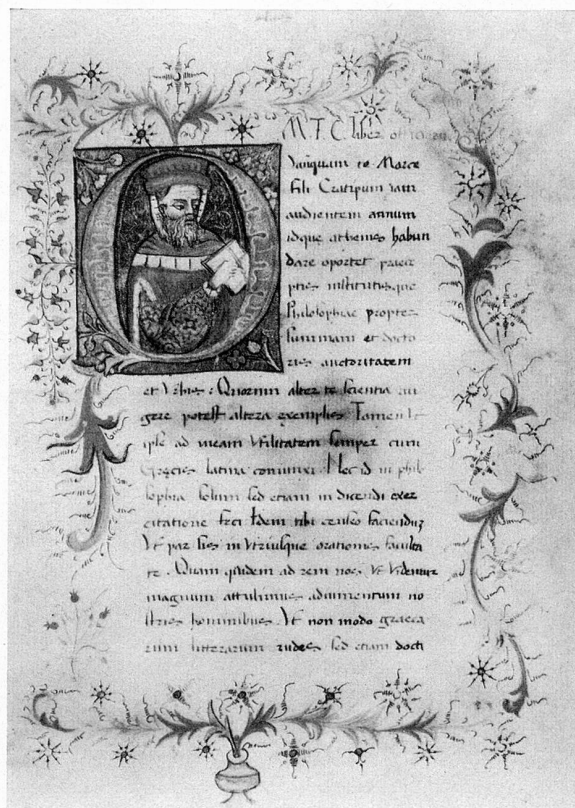 M. T. C. liber
Qvanquam te Marce
fili Cratipum iam
audientem annum
idque athenis habun
dare oportet praece
ptis institutisque
Philosophiae propter
summam et docto
ris auctoritatem
et Vrbis : Quorum alter te scientia au
gere potest altera exemplis Tamen Vt
ipse ad meam Vtilitatem semper cum
Grecis latina coniunxi Nec id in philo
sophia solum sed etiam in dicendi exer
citatione feci Idem tibi censeo facienduz
Vt par sis in Vtriusque orationis faculta
te . Quam quidem ad rem nos Vt Videmur
magnum attulimus adiumentum no
stris hominibus . Vt non modo graeca
rum litterarum rudes sed etiam docti